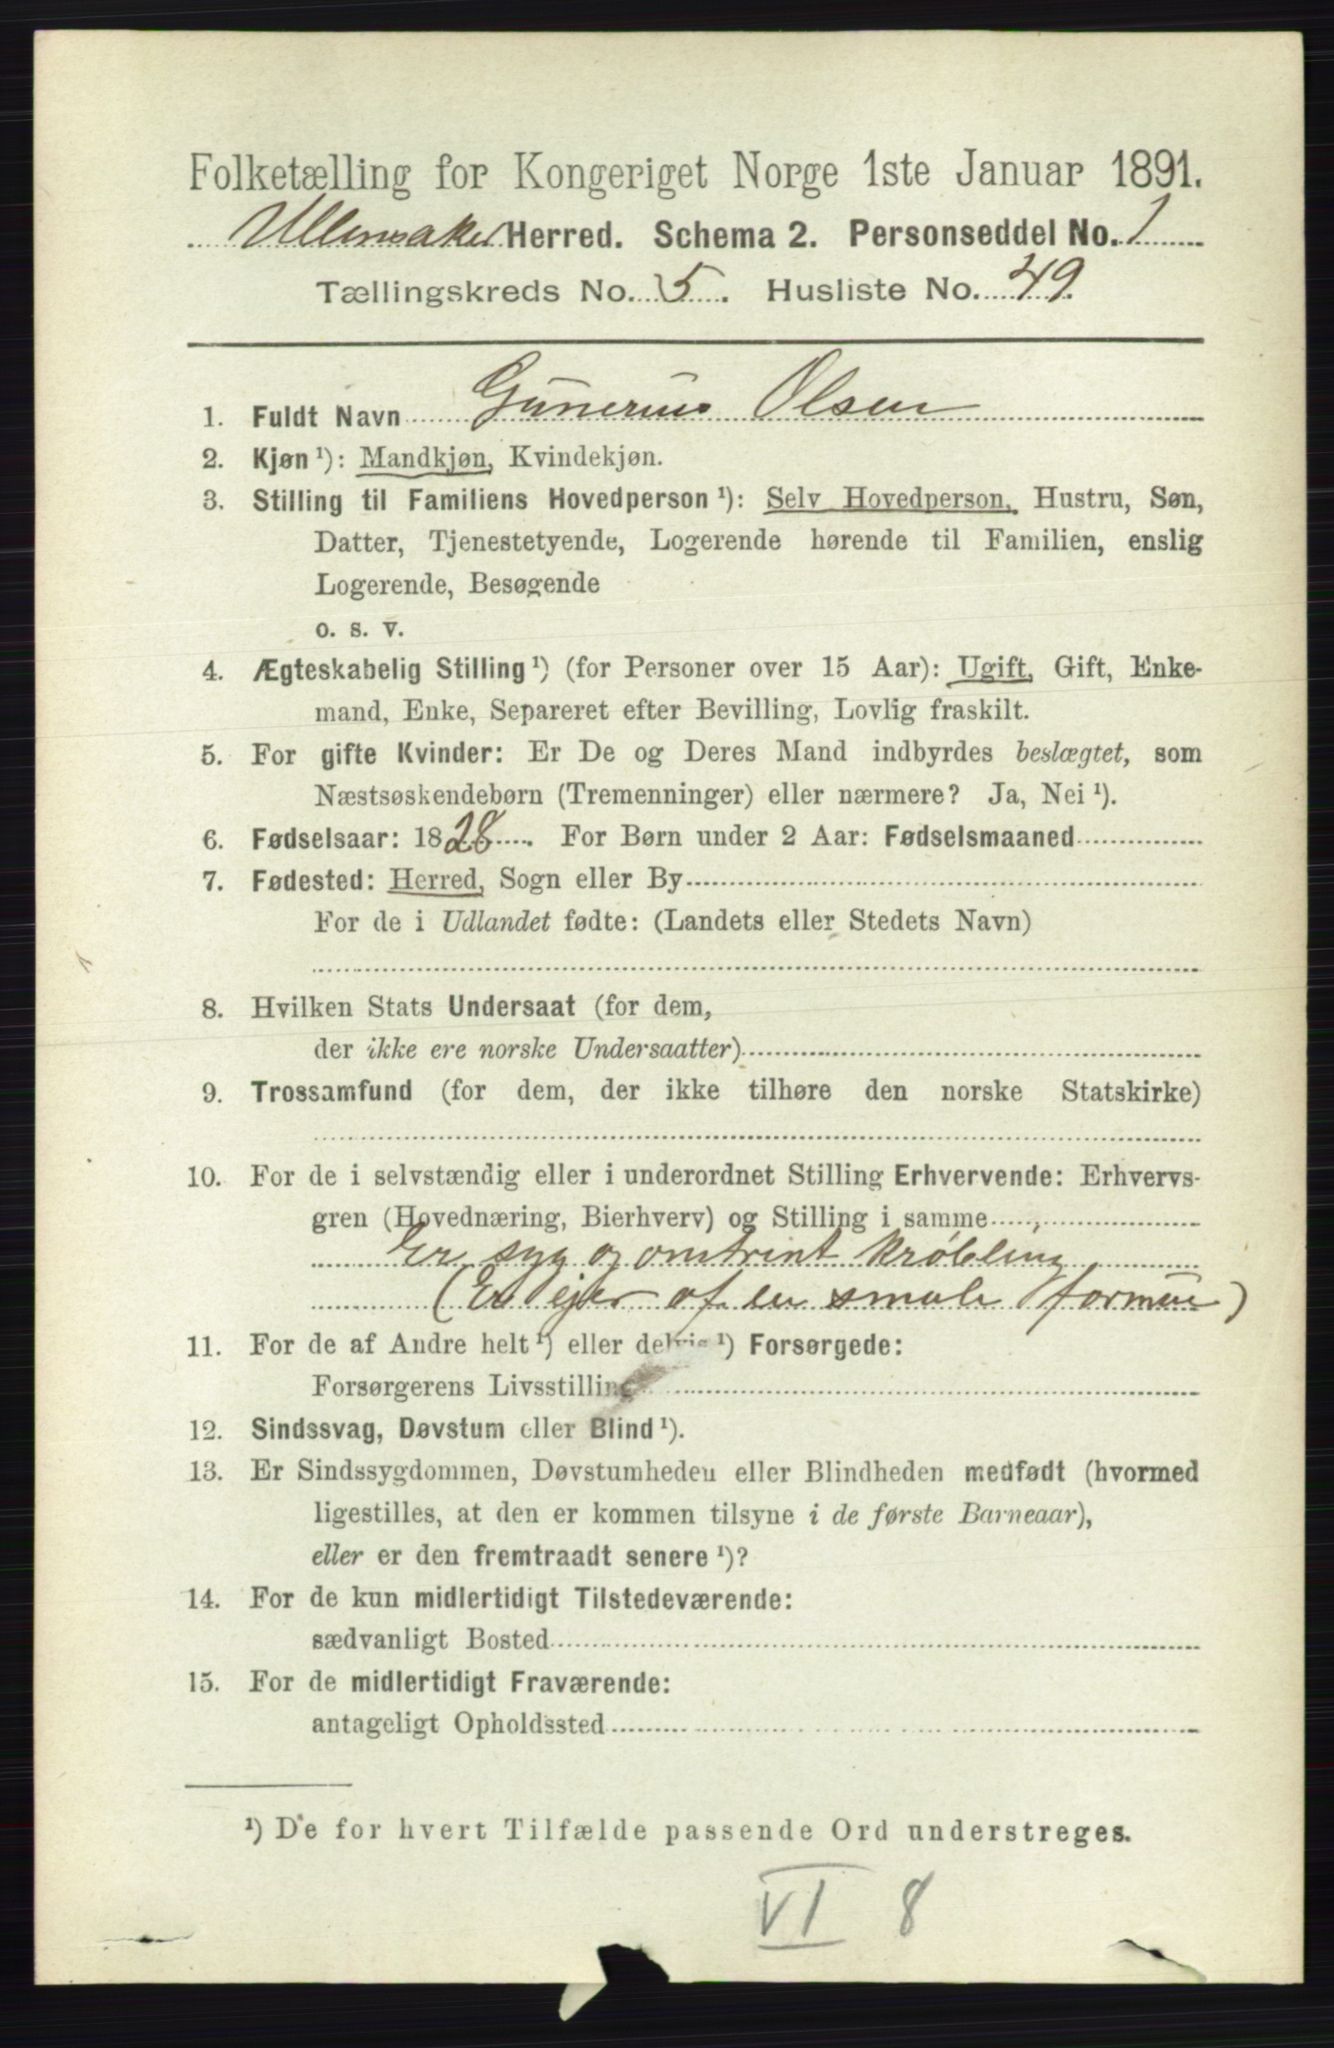 Folketælling for Kongeriget Norge 1ste Januar 1891.
Ullensaker Herred. Schema 2. Personseddel No. 1
Tællingskreds No. 5. Husliste No. 49.
1. Fuldt Navn Gunerius Olsen
2. Kjøn ¹): Mandkjøn, Kvindekjøn.
3. Stilling til Familiens Hovedperson ¹): Selv Hovedperson, Hustru, Søn,
Datter, Tjenestetyende, Logerende hørende til Familien, enslig
Logerende, Besøgende
o. s. v.
4. Ægteskabelig Stilling ¹) (for Personer over 15 Aar): Ugift, Gift, Enke-
mand, Enke, Separeret efter Bevilling, Lovlig fraskilt.
5. For gifte Kvinder: Er De og Deres Mand indbyrdes beslægtet, som
Næstsøskendebørn (Tremenninger) eller nærmere? Ja, Nei ¹).
6. Fødselsaar: 1828. For Børn under 2 Aar: Fødselsmaaned
7. Fødested: Herred, Sogn eller By
For de i Udlandet fødte: (Landets eller Stedets Navn)
8. Hvilken Stats Undersaat (for dem,
der ikke ere norske Undersaatter)
9. Trossamfund (for dem, der ikke tilhøre den norske Statskirke)
10. For de i selvstændig eller i underordnet Stilling Erhvervende: Erhvervs-
gren (Hovednæring, Bierhverv) og Stilling i samme
Er syg og omtrint krøbling
(Er ejer af en smule formue)
11. For de af Andre helt ¹) eller delvis ¹) Forsørgede:
Forsørgerens Livsstilling
12. Sindssvag, Døvstum eller Blind ¹).
13. Er Sindssygdommen, Døvstumheden eller Blindheden medfødt (hvormed
ligestilles, at den er kommen tilsyne i de første Barneaar),
eller er den fremtraadt senere ¹)?
14. For de kun midlertidigt Tilstedeværende:
sædvanligt Bosted
15. For de midlertidigt Fraværende:
antageligt Opholdssted
¹) De for hvert Tilfælde passende Ord understreges.
VI 8